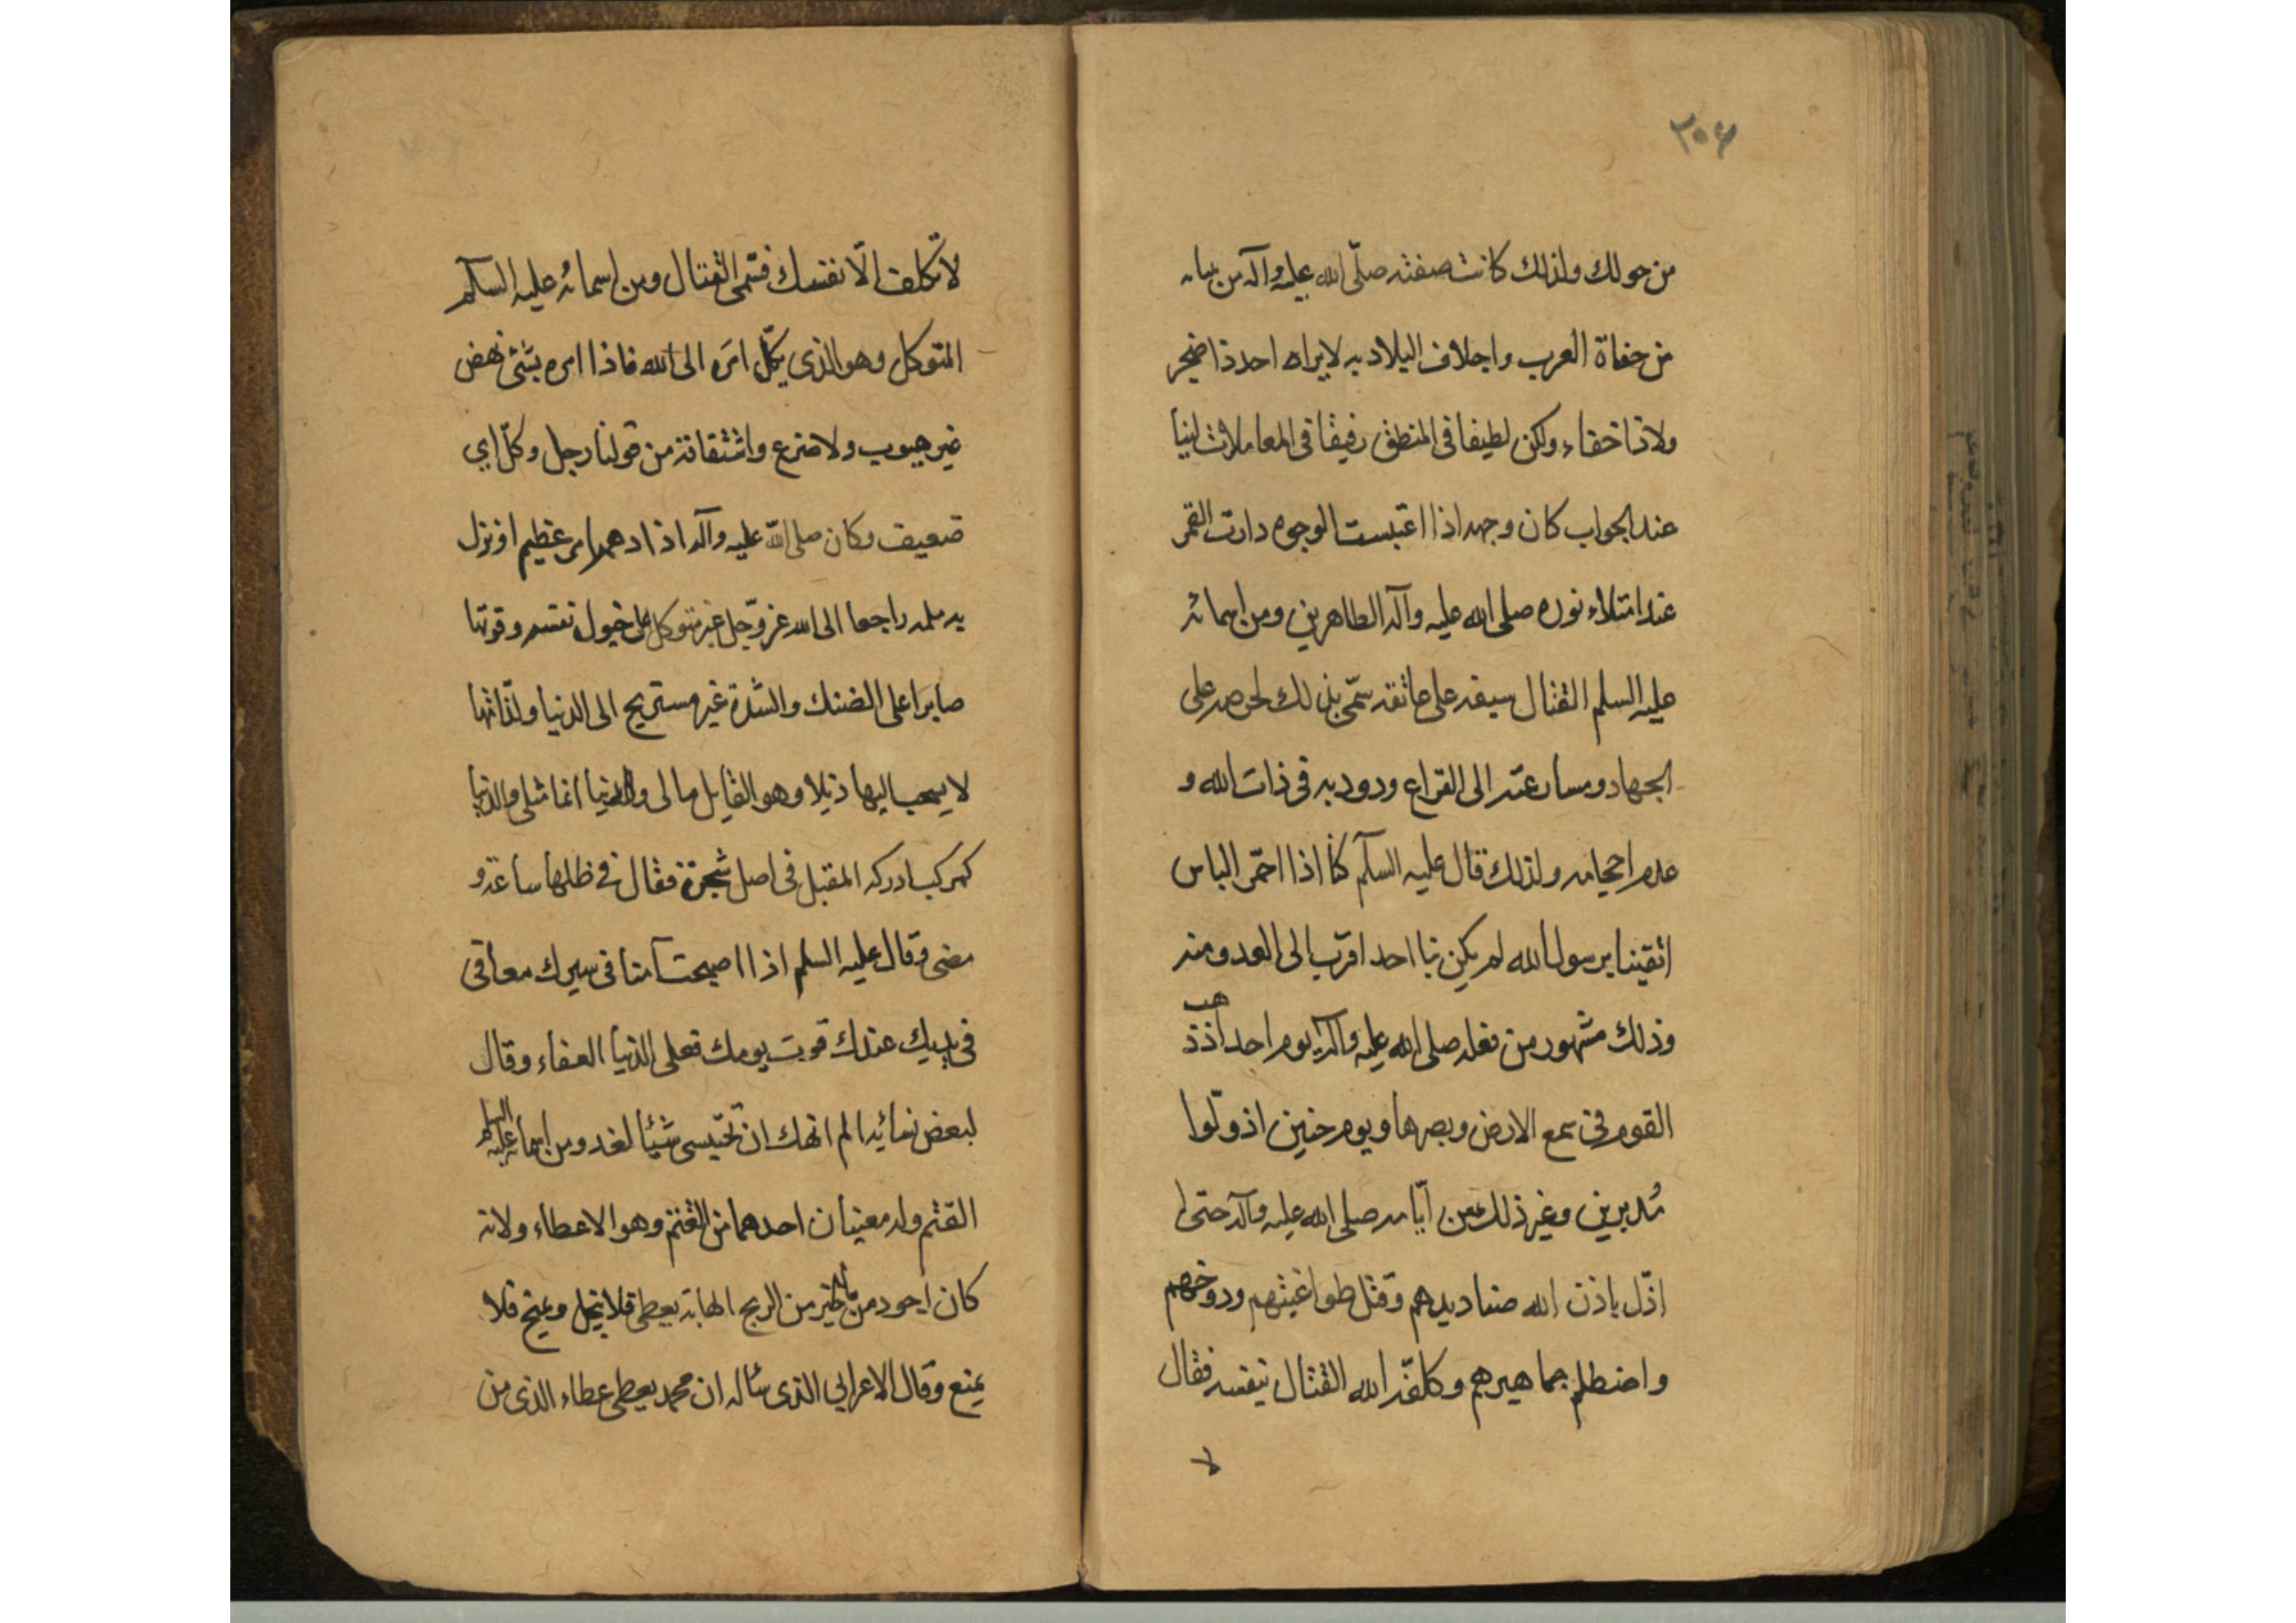 ٢٠٤
من حولك ولذلك كانت صفته صلّى الله عليه وآله من
من جفاة العرب واجلاف البلاد به لايراه احد ذا ضجر
ولا ذا خفاء ولكن لطيفا فى المنطق رفيقا فى المعاملات لينا
عند الجواب كان وجهه اذا اعتبست الوجوه دارت القمر
عند امتلاء نوره صلى الله عليه وآله الطاهرين ومن اسمائه
عليه السلم القتال سيفه على عاتقه سمّى بذلك لحرصه على
الجهاد ومسارعته الى القراع ودود به فى ذات الله و
عدم احجامه ولذلك قال عليه السلام كنا اذا احمّر الباس
اتقينا برسول الله لم يكن بنا احد اقرب الى العدو منه
وذلك مشهور من فعله صلى الله عليه وآله يوم احد اذ ذهب
القوم فى سمع الارض وبصرها ويوم حنين اذ ولّوا
مُدبرين وغير ذلك من ايّامه صلى الله عليه وآله حتى
اذّل باذن الله صناديدهم وقتل طواغيتهم ودوخهم
واضطلم جماهيرهم وكلفّه الله القتال بنفسه فقال
لا
لا تكلف الّا نفسك فسّمى القتال ومن اسمائه عليه السلام
المتوكل وهو الذى يكّل امره الى الله فاذا امره بشئ نهض
غير هيوب ولا ضرع واشتقاقه من قولنا رجل وكّل اى
ضعيف وكان صلى الله عليه وآله اذا دهمه امر عظيم او نزل
به ملمه راجعا الى الله عزّوجّل غير متوكل على حول نفسه وقوتها
صابرا على الضنك والشّدة غير مستريح الى الدنيا ولذّاتها
لا يسحب اليها ذيلا وهو القايل مالى والدنيا انما مثلى والدنيا
كمركب ادركه المقبل فى اصل شجرة فقال فى ظلها ساعة و
مضى وقال عليه السلم اذا اصبحت آمنا فى سربك معافى
فى بدنك عندك قوت يومك فعلى الدنيا العفاء وقال
لبعض نسائه الم انهك ان تحتبسى شيئا لغد ومن اسمائه عليه السلم
القثم وله معنيان احدهما من القثم وهو الاعطاء ولانه
كان اجود بالخير من الريح الهابة يعطى فلا يبخل ويمنح فلا
يمنع وقال الاعرابى الذى سأله ان محمد يعطى عطاء الذى من